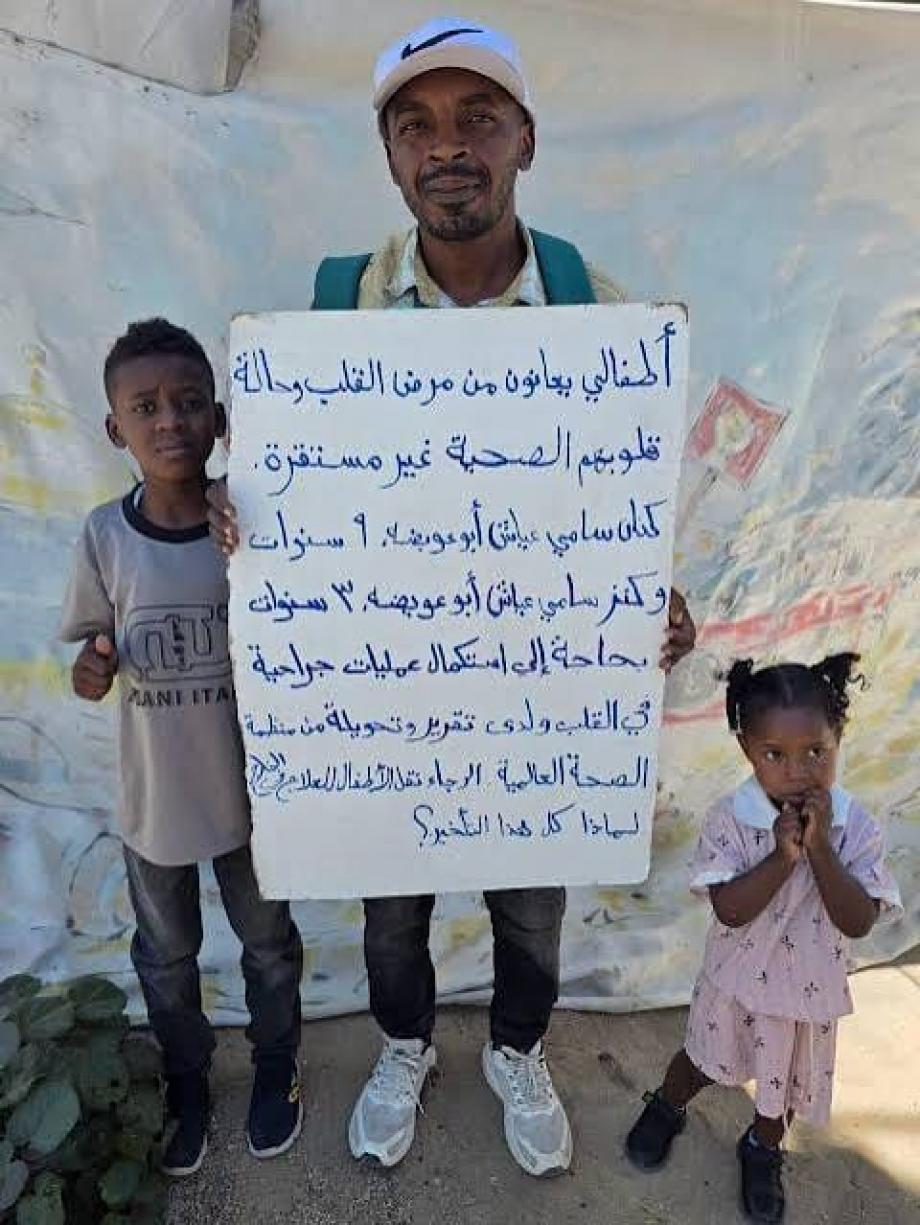 أطفالي يعانون من مرض القلب وحالة
قلوبهم الصحية غير مستقرة.
كنان سامي عياش أبو عويضه. ٩ سنوات
و كنز سامي عياش أبو عويضه. ٣ سنوات
بحاجة إلى استكمال عمليات جراحية
في القلب ولدى تقرير وتحويلة من منظمة
الصحة العالمية الرجاء نقل الأطفال للعلاج
لماذا كل هذا التأخير؟
ANI ITA